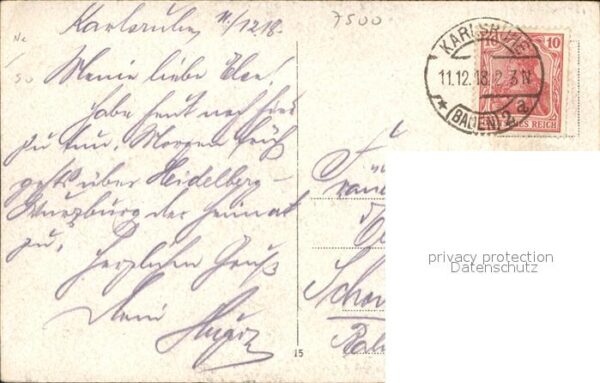 Karlsruhe, 11./12.18.
7500
Meine liebe Else!
habe heut noch hier
zu tun. Morgen früh
geht's über Heidelberg-
Würzburg der Heimat
zu.
Herzlichen Gruß
Dein
KARLSRUHE
11.12.18. 2-3N
* (BADEN) 2. a
10 10
DEUTSCHES REICH
15
privacy protection
Datenschutz